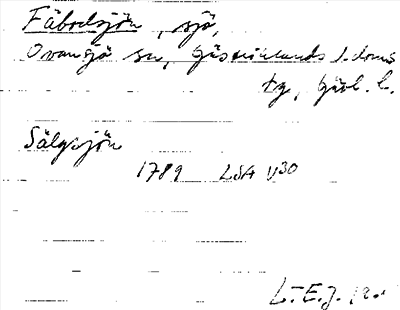 Fäbodsjön, sjö,
Ovansjö sn, Gästriklands l.doms
tg, Gävl. l.
Sälgsjön
1789 LSA U30
L.E.J.